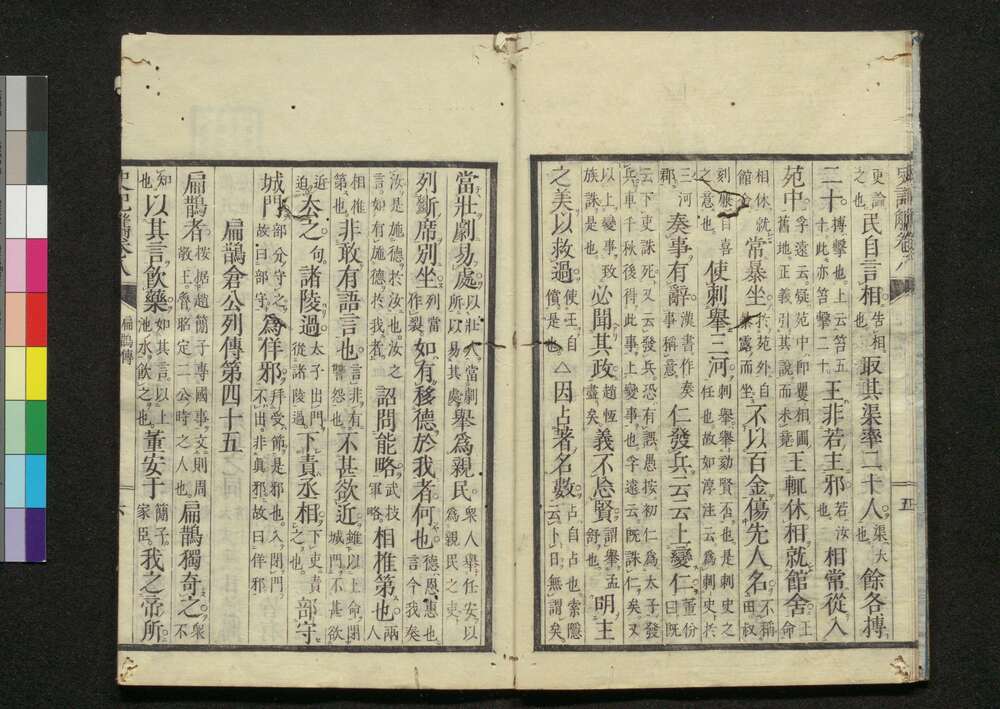 更論之也民自言相告相也取其渠率二十人渠大也餘各搏
二十搏擊也上云笞五十此亦笞擊二十王非若主邪若汝也相常從入
苑中孚遠云疑苑中即矍相圃舊地正義引其說而未竟王輒休相就館舍王命
相休就館舍常暴坐於苑外自暴露而坐不以百金傷先人名不稱田叔
刻廉自喜之意也使刺舉三河刺舉舉劾賢否也是刺史之任也故如淳注云為刺史於
三河郡奏事有辭漢書作奏事稱意仁發兵云云上變仁重份曰既
云下吏誅死又云發兵恐有誤愚按初仁為太子發兵車千秋後得此事上變事也孚遠云既誅仁矣又
以上變事致族誅是也必聞其政趙恆盡矣義不忘賢謂舉孟舒也明主
之美以救過使王自償是也△因占著名數占自占也索隱云卜日無謂矣
當壯劇易處以壯人當劇所以易其處舉為親民眾人舉任安以為親民之吏
列斷席別坐列當作裂如有移德於我者何也德恩惠也言今我矣
汝是施德於汝也汝之言如有施德於我者詔問能略武技軍略相推第也兩人
相推第也非敢有語言也言非有讐怨也不甚欲近雖以上命閉城門不甚欲
近迫太之句諸陵過太子出門從諸陵過下責丞相下吏責之也部守
城門部分守之故曰部守為佯邪拜受節是邪也入閉門不出非真邪故曰佯邪
扁鵲倉公列傳第四十五
扁鵲者按据趙簡子專國事文則周敬王晉昭定二公時之人也扁鵲獨奇之眾不
知也以其言飲藥如其言以上池水飲之也董安于簡子家臣我之帝所
扁鵲傳
五
六